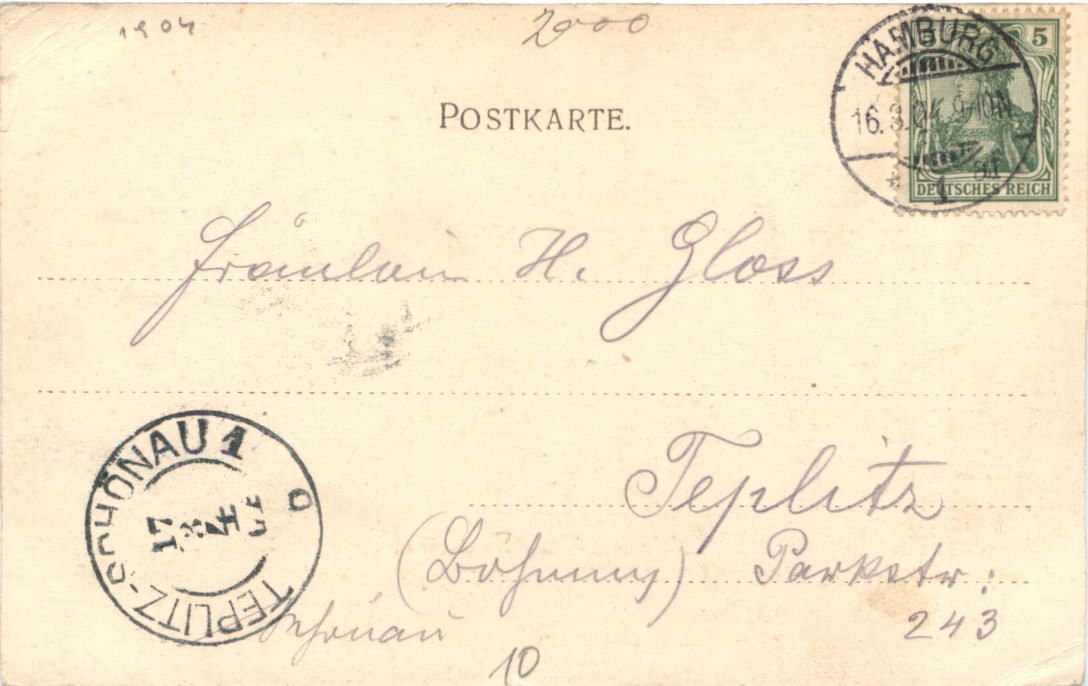 1904
2000
5
HAMBURG
16.3.04. 9-10N
* 1
DEUTSCHES REICH
POSTKARTE.
Fräulein H. Gloss
Teplitz
(Böhmen) Parkstr:
243
Schönau
10
TEPLITZ-SCHÖNAU 1
17
3
4